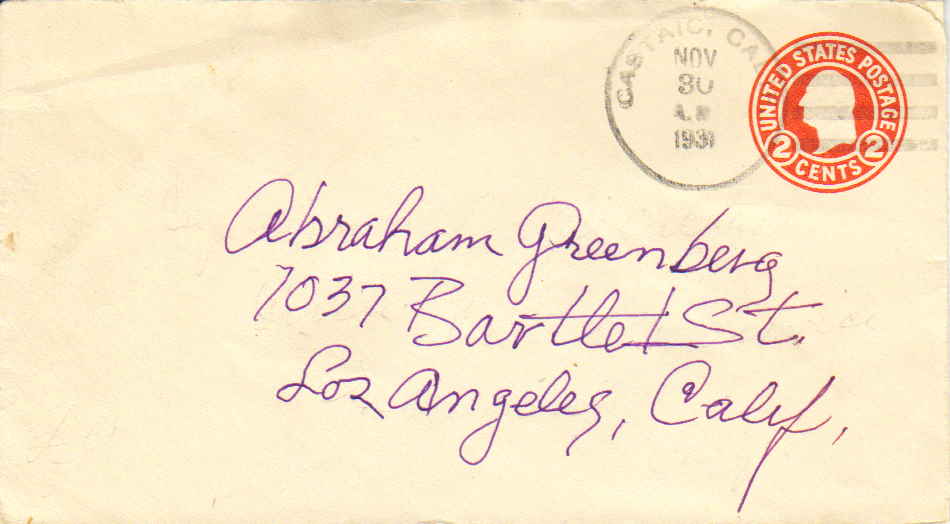 CASTAIC, CAL
NOV
30
A.M
1931
UNITED STATES POSTAGE
2 CENTS 2
Abraham Greenberg
7037 Bartlet St.
Los Angeles, Calif.